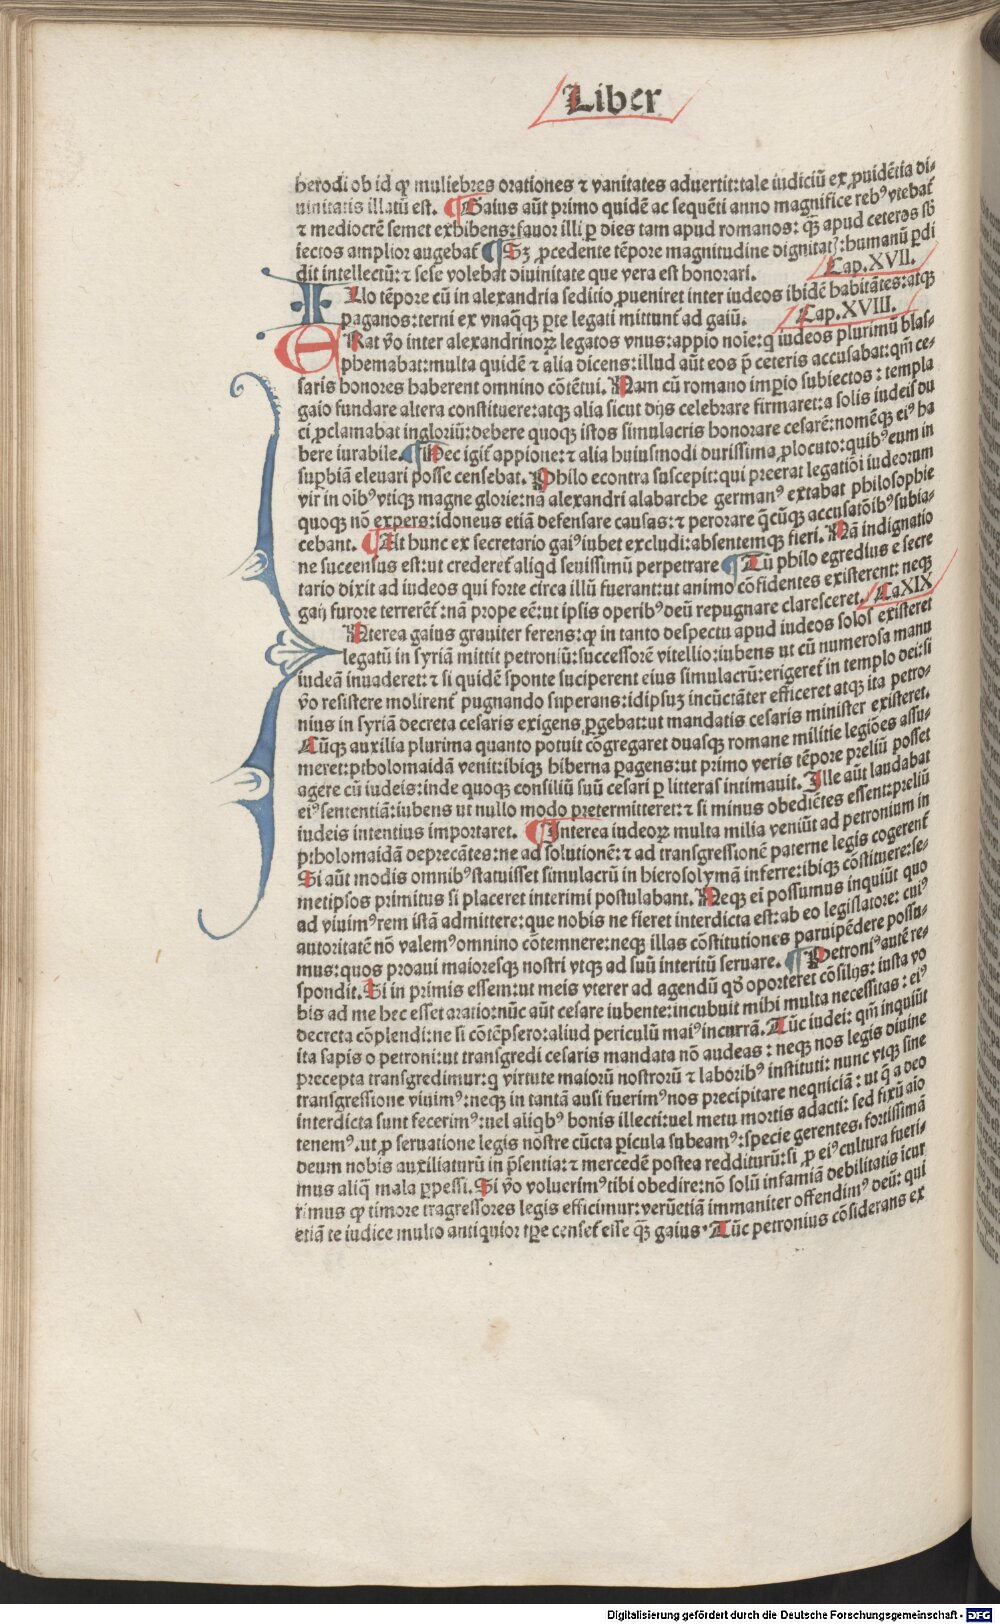 Liber
herodi ob id ꝙ muliebres orationes ⁊ vanitates aduertit:tale iudiciū ex ꝓuidētia di⸗
uinitatis illatū est. ¶ Gaius aūt primo quidē ac sequēti anno magnifice rebꝰ vtebat̄
⁊ mediocrē semet exhibens:fauor illi ꝑ dies tam apud romanos: qꝫ̄ apud ceteros sb̄
iectos amplior augebat̄ ¶ Sꝫ ꝓcedente tēpore magnitudine dignitatꝭ:humanū ꝑdi
dit intellectū:⁊ sese volebat diuinitate que vera est honorari. Cap.XVII.
Illo tēpore cū in alexandria seditio ꝓueniret inter iudeos ibidē habitātes:atqꝫ
paganos:terni ex vnaq̄qꝫ ꝑte legati mittunt̄ ad gaiū. Cap.XVIII.
ERat v̄o inter alexandrinoꝝ legatos vnus:appio noīe:q iudeos plurimū blas⸗
phemabat:multa quidē ⁊ alia dicens:illud aūt eos p̄ ceteris accusabat:qm̄ ce⸗
saris honores haberent omnino cōtētui. Nam cū romano imꝑio subiectos: templa
gaio fundare altera constituere:atqꝫ alia sicut dijs celebrare firmaret:a solis iudeis du
ci ꝓclamabat ingloriū:debere quoqꝫ istos simulacris honorare cesarē:nomēqꝫ eiꝰ ha
bere iurabile. ¶ Hec igit̄ appione:⁊ alia huiusmodi durissima ꝓlocuto:quibꝰ eum in
suꝑbiā eleuari posse censebat. Philo econtra suscepit:qui preerat legatiōi iudeorum
vir in oībꝰ vtiqꝫ magne glorie:nā alexandri alabarche germanꝰ extabat philosophie
quoqꝫ nō expers:idoneus etiā defensare causas:⁊ perorare q̄cūqꝫ accusatōibꝰ subia⸗
cebant. ¶ At hunc ex secretario gaiꝰ iubet excludi:absentemqꝫ fieri. Nā indignatio
ne succensus est:ut crederet̄ aliqd seuissimū perpetrare ¶ Tū philo egredius e secre
tario dixit ad iudeos qui forte circa illū fuerant:ut animo cōfidentes existerent: neqꝫ
gaij furore terrerēt̄:nā prope eē:ut ipsis operibꝰ deū repugnare claresceret. CaXIX
Nterea gaius grauiter ferens:ꝙ in tanto despectu apud iudeos solos existeret
legatū in syriā mittit petroniū:successorē vitellio:iubens ut cū numerosa manu
iudeā inuaderet:⁊ si quidē sponte susciperent eius simulacrū:erigeret̄ in templo dei:si
v̄o resistere molirent̄ pugnando superans:idipsuꝫ incūctāter efficeret atqꝫ ita petro⸗
nius in syriā decreta cesaris exigens ꝑgebat:ut mandatis cesaris minister existeret.
Tūqꝫ auxilia plurima quanto potuit cōgregaret duasqꝫ romane militie legiōes assu⸗
meret:ptholomaidā venit:ibiqꝫ hiberna ꝑagens:ut primo veris tēpore preliū posset
agere cū iudeis:inde quoqꝫ consiliū suū cesari ꝑ litteras intimauit. Ille aūt laudabat
eiꝰ sententiā:iubens ut nullo modo pretermitteret:⁊ si minus obediētes essent:preliū
iudeis intentius importaret. ¶ Interea iudeoꝝ multa milia veniūt ad petronium in
ptholomaidā deprecātes:ne ad solutionē:⁊ ad transgressionē paterne legis cogerent̄
Si aūt modis omnibꝰ statuisset simulacrū in hierosolymā inferre:ibiqꝫ cōstituere:se⸗
metipsos primitus si placeret interimi postulabant. Neqꝫ ei possumus inquiūt quo
ad viuimꝰ rem istā admittere:que nobis ne fieret interdicta est:ab eo legislatore: cuiꝰ
autoritatē nō valemꝰ omnino cōtemnere:neqꝫ illas cōstitutiones paruipēdere possu⸗
mus:quos proaui maioresqꝫ nostri vtqꝫ ad suū interitū seruare. ¶ Petroniꝰ autē re⸗
spondit. Si in primis essem:ut meis vterer ad agendū qd̄ oporteret cōsilijs: iusta vo
bis ad me hec esset oratio:nūc aūt cesare iubente:incubuit mihi multa necessitas: eiꝰ
decreta cōplendi:ne si cōtēpsero:aliud periculū maiꝰ incurrā. Tūc iudei: qm̄ inquiūt
ita sapis o petroni:ut transgredi cesaris mandata nō audeas: neqꝫ nos legis diuine
precepta transgredimur:q virtute maiorū nostrorū ⁊ laboribꝰ instituti: nunc vtqꝫ sine
transgressione viuimꝰ:neqꝫ in tantā ausi fuerimꝰ nos precipitare neqniciā: ut q̄ a deo
interdicta sunt fecerimꝰ:uel aliqbꝰ bonis illecti:uel metu mortis adacti: sed fixū aīo
tenemꝰ.ut ꝓ seruatione legis nostre cūcta ꝑicula subeamꝰ:specie gerentes. fortissimā
deum nobis auxiliaturū in p̄sentia:⁊ mercedē postea redditurū:si ꝓ eiꝰ cultura fueri⸗
mus aliq̄ mala ꝑpessi. Si v̄o voluerimꝰ tibi obedire:nō solū infamiā debilitatis icur
rimus ꝙ timore trāgressores legis efficimur:verūetiā immaniter offendimꝰ deū: qui
etiā te iudice multo antiquior tꝑe censet̄ esse qꝫ̄ gaius. Tūc petronius cōsiderans ex
Digitalisierung gefördert durch die Deutsche Forschungsgemeinschaft - DFG